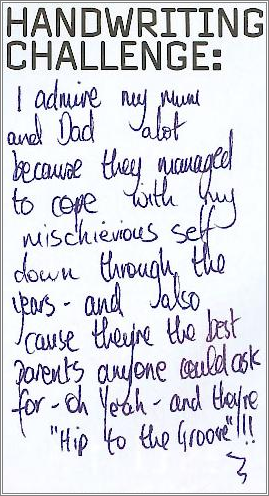 HANDWRITING
CHALLENGE:
I admire my mum
and Dad alot
because they managed
to cope with my
mischievious self
down through the
years - and also
'cause theyre the best
parents anyone could ask
for - oh Yeah - and they're
"Hip to the Groove"!!!